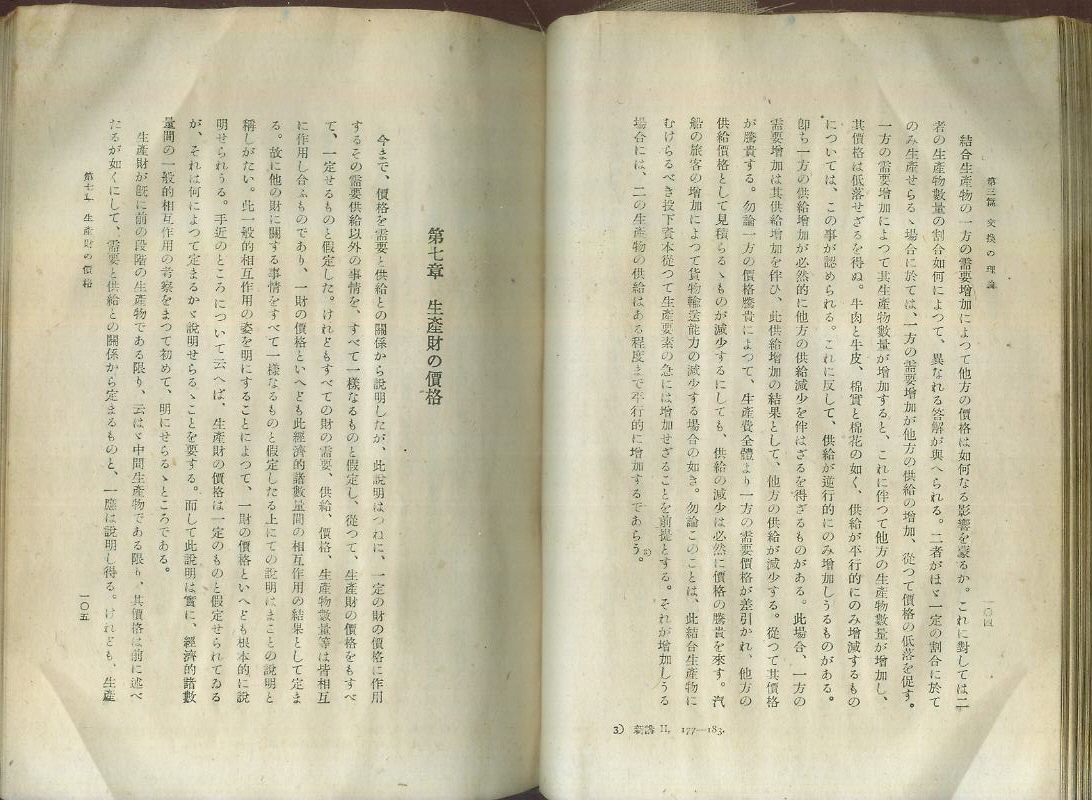 第三篇 交換の理論
一〇四
結合生產物の一方の需要增加によつて他方の價格は如何なる影響を蒙るか。これに對しては二
者の生產物數量の割合如何によつて、異なれる答解が與へられる。二者がほゞ一定の割合に於て
のみ生產せらるゝ場合に於ては、一方の需要增加が他方の供給の增加、從つて價格の低落を促す。
一方の需要增加によつて其生產物數量が增加すると、これに伴つて他方の生產物數量が增加し、
其價格は低落せざるを得ぬ。牛肉と牛皮、棉實と棉花の如く、供給が平行的にのみ增減するもの
については、この事が認められる。これに反して、供給が逆行的にのみ增加しうるものがある。
卽ち一方の供給增加が必然的に他方の供給減少を伴はざるを得ざるものがある。此場合、一方の
需要增加は其供給增加を伴ひ、此供給增加の結果として、他方の供給が減少する。從つて其價格
が騰貴する。勿論一方の價格騰貴によつて、生產費全體より一方の需要價格が差引かれ、他方の
供給價格として見積らるゝものが減少するにしても、供給の減少は必然に價格の騰貴を來す。汽
船の旅客の增加によつて貨物輸送能力の減少する場合の如き。勿論このことは、此結合生產物に
むけらるべき投下資本從つて生產要素の急には增加せざることを前提とする。それが增加しうる
場合には、二の生產物の供給はある程度まで平行的に增加するであらう。3)
3) 新講 II, 177—183.
第七章 生產財の價格
今まで、價格を需要と供給との關係から說明したが、此說明はつねに、一定の財の價格に作用
するその需要供給以外の事情を、すべて一樣なるものと假定し、從つて、生產財の價格をもすべ
て、一定せるものと假定した。けれどもすべての財の需要、供給、價格、生產物數量等は皆相互
に作用し合ふものであり、一財の價格といへども此經濟的諸數量間の相互作用の結果として定ま
る。故に他の財に關する事情をすべて一樣なるものと假定したる上にての說明はまことの說明と
稱しがたい。此一般的相互作用の姿を明にすることによつて、一財の價格といへども根本的に說
明せられうる。手近のところについて云へば、生產財の價格は一定のものと假定せられてゐる
が、それは何によつて定まるかゞ說明せらるゝことを要する。而して此說明は實に、經濟的諸數
量間の一般的相互作用の考察をまつて初めて、明にせらるゝところである。
生產財が旣に前の段階の生產物である限り、云はゞ中間生產物である限り、其價格は前に述べ
たるが如くにして、需要と供給との關係から定まるものと、一應は說明し得る。けれども、生產
第七章 生產財の價格
一〇五